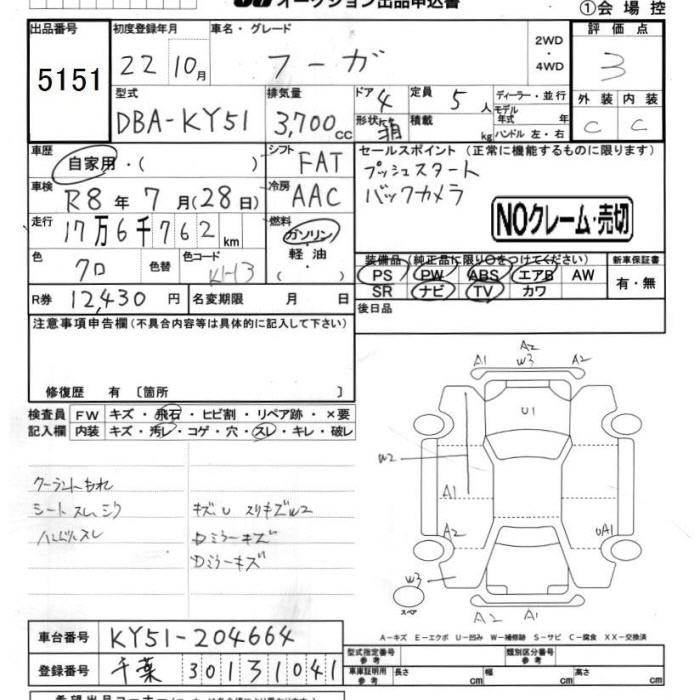 オークション出品申込書
①会場控
出品番号
5151
初度登録年月
22 10月
車名・グレード
フーガ
2WD
・
4WD
評価点
3
型式
DBA-KY51
排気量
3,700cc
ドア
4
形状
定員
5人
積載
kg
ディーラー・並行
モデル年式 年
ハンドル 左・右
外装 内装
C C
車歴
自家用・( )
シフト
FAT
セールスポイント (正常に機能するものに限ります)
プッシュスタート
バックカメラ
NOクレーム・売切
車検
R8年7月(28日)
冷房
AAC
走行
17万6千762km
燃料
ガソリン・軽油
色
クロ
色替
色コード
KH3
装備品 (純正品に限り〇をつけてください)
新車保証書
PS PW ABS エアB AW
有・無
SR ナビ TV カワ
R券 12,430円
名変期限 月 日
後日品
注意事項申告欄(不具合内容等は具体的に記入して下さい)
修復歴 有 〔箇所 〕
検査員記入欄
FW キズ・飛石・ヒビ割・リペア跡・×要
内装 キズ・汚レ・コゲ・穴・スレ・キレ・破レ
クーラントもれ
シート スレ、シワ
キズ、U スリキズW2
ハンドルスレ
Dミラーキズ
A2
A1 W3 A2
U1
W2
A1
A2 UA1
W3
スペア
A2 A1
A-キズ E-エクボ U-凹み W-補修跡 S-サビ C-腐食 XX-交換済
車台番号
KY51-204664
登録番号
千葉 301 31041
型式指定番号 参考
類別区分番号 参考
車庫証明用 参考
長さ cm
幅 cm
高さ cm